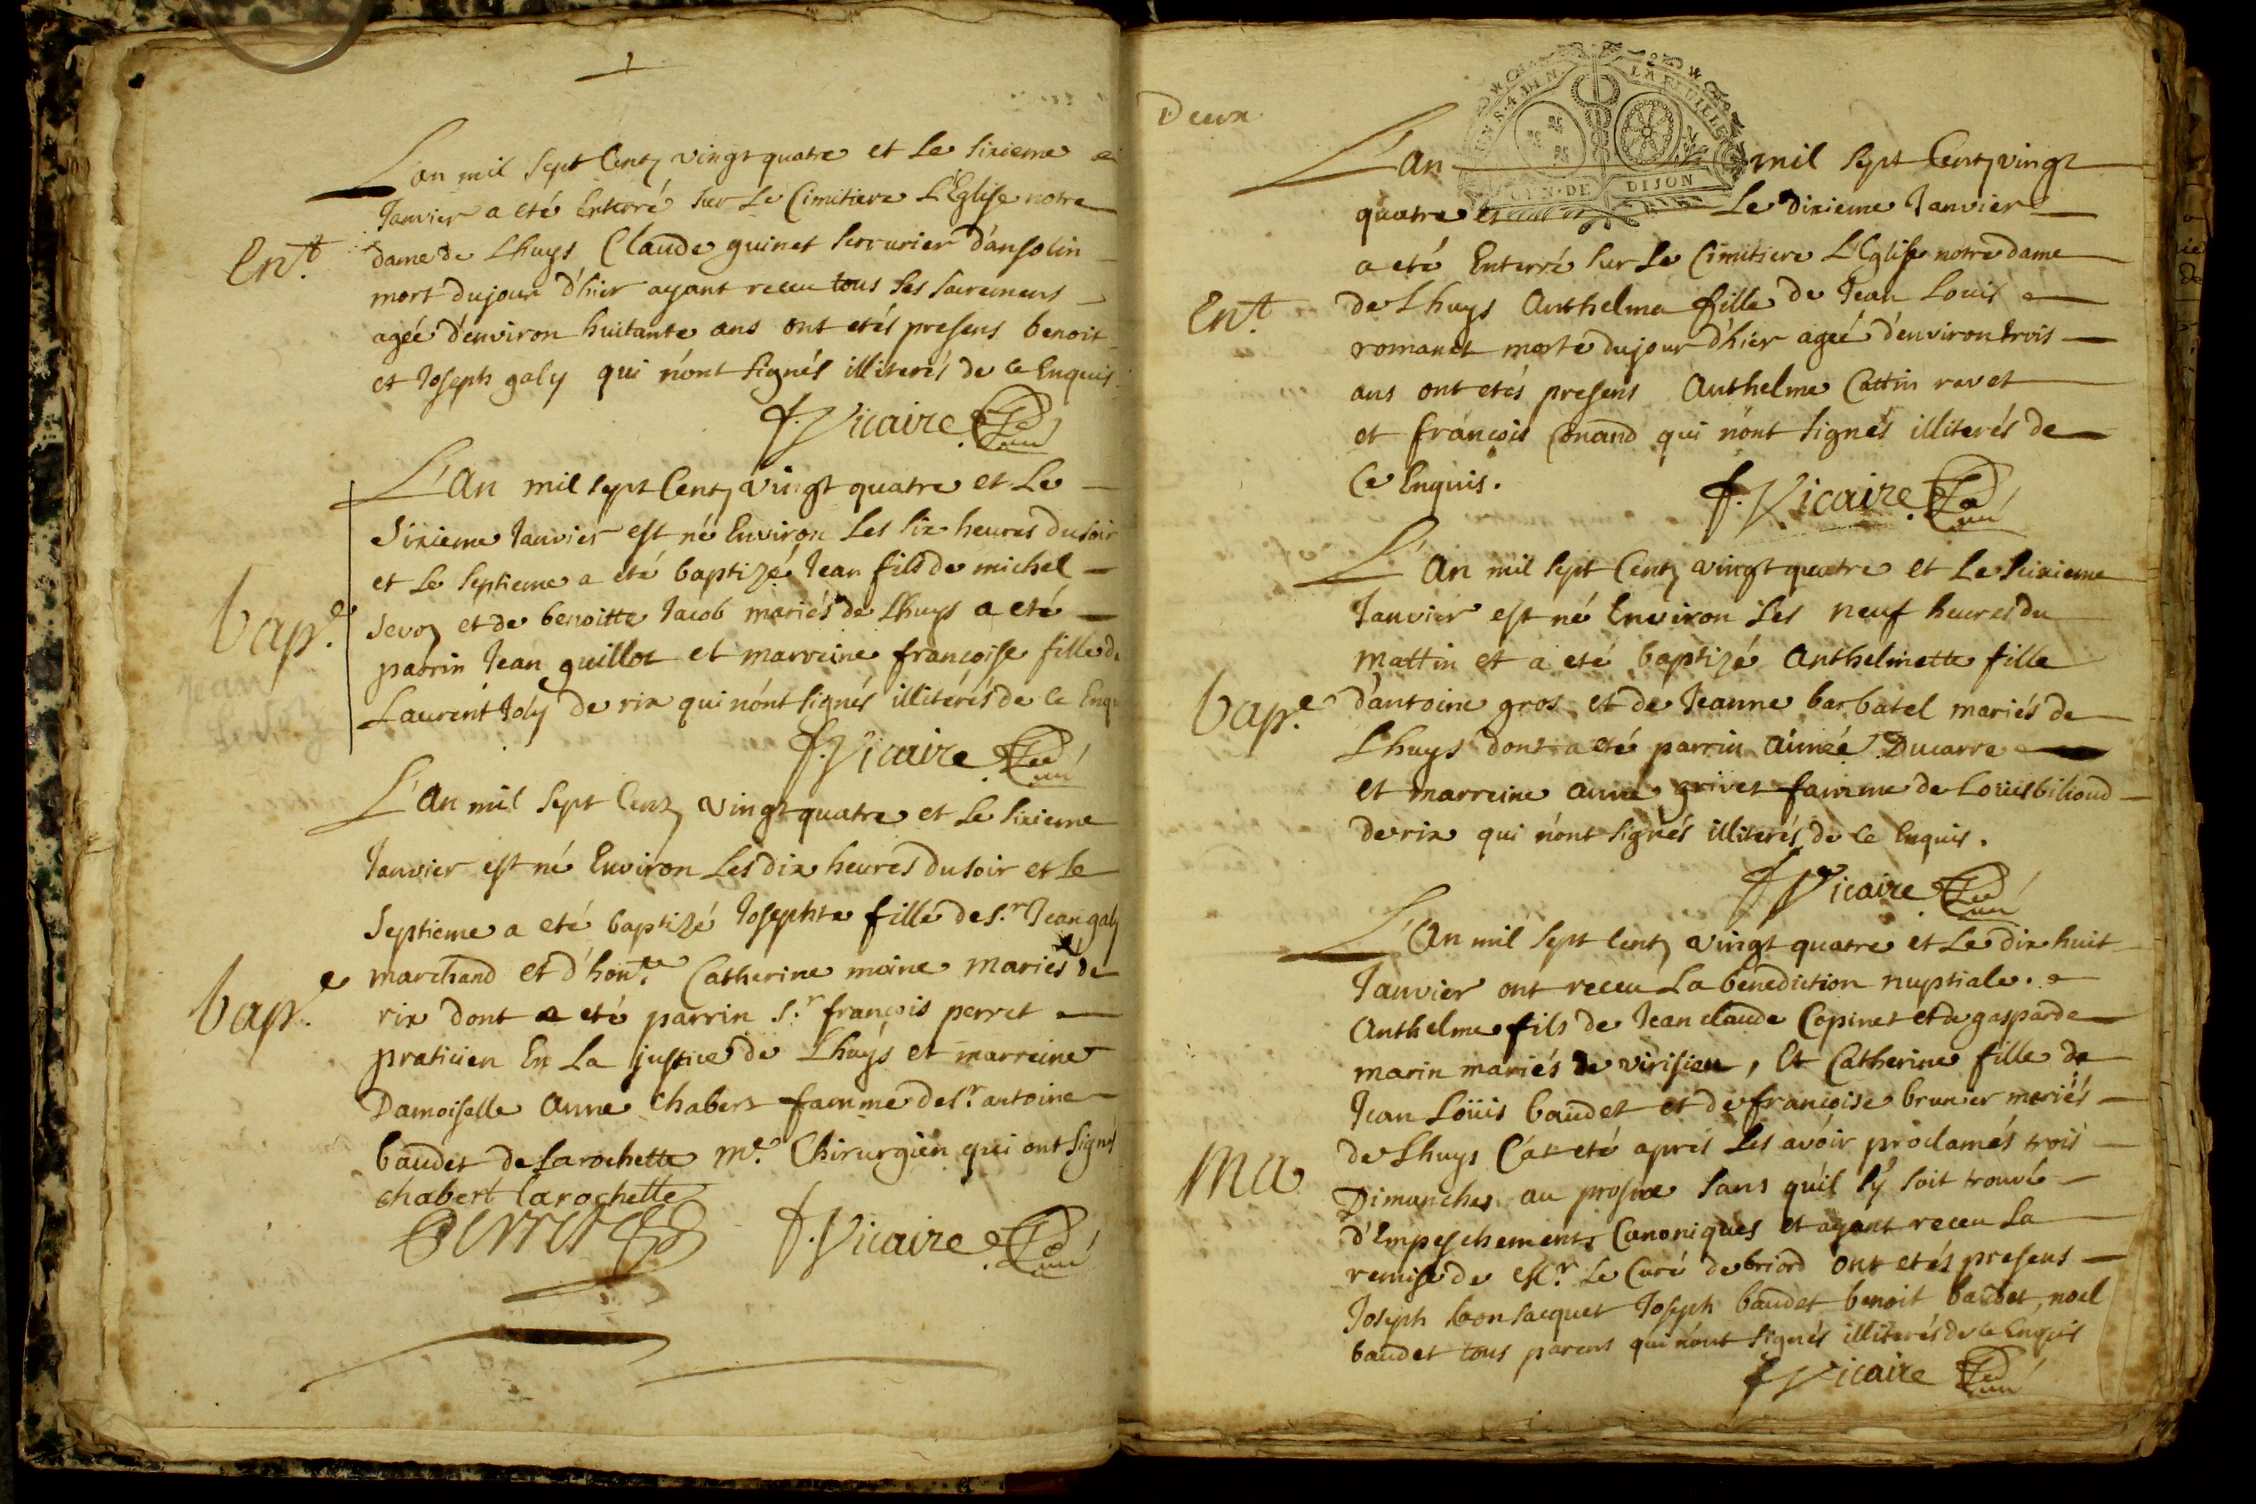 1
L'an mil sept Centz vingt quatre et Le sixieme
Janvier a eté Enterré sur Le Cimitiere L'Eglise notre
Ent. dame de Lhuys Claude guinet serrurier d'ansolin
mort du jour d'hier ayant receu tous ses sacremens
ageé d'environ huitante ans ont etés presens benoit
et Joseph galy qui n'ont signés illiterés de ce Enquis
f. Vicaire
L'An mil sept Centz vingt quatre et Le
Sixieme Janvier est né Environ Les six heures du soir
et Le septieme a eté baptizé Jean fils de michel
bap.e sevoz et de benoitte Jacob mariés de Lhuys a eté
parrin Jean guillot et marreine françoise fille d
Laurent Joly de rix qui n'ont signés illitérés de ce Enqu
Jean
f. Vicaire
L'An mil sept Centz vingt quatre et Le sixieme
Janvier est né Environ Les dix heures du soir et Le
Septieme a eté baptizé Josephte fille de s.r Jean galy
marchand et d'hon.te Catherine moine mariés de
bap.e rix dont a eté parrin s.r françois perret
praticien En La justice de Lhuys et marreine
Damoiselle Anne Chabert famme de s.r antoine
baudet de Larochette m.e Chirurgien qui ont signés
chabert larochette
Perret f. Vicaire
Deux
GEN. DE DIJON
L'an mil sept Centz vingt
quatre et Le dixieme Janvier
a eté Enterré sur Le Cimitiere L'Eglise notre dame
Ent. de Lhuys Anthelma fille de Jean Louis
romanet morte du jour d'hier ageé d'environ trois
ans ont etés presens Anthelme Cattin ravet
et françois Conand qui n'ont signés illiterés de
Ce Enquis.
f. Vicaire
L'An mil sept Centz vingt quatre et Le seixieme
Janvier est né Environ Les neuf heures du
mattin et a eté baptizé Anthelmette fille
bap.e d'antoine gros et de Jeanne barbatel mariés de
Lhuys dont a eté parrin aimée Ducarre
et marreine anne grivet famme de Loüis bilioud
de rix qui n'ont signés illiterés de ce Enquis.
f Vicaire
L'An mil sept Centz vingt quatre et Le dix huit
Janvier ont receu La benediction nuptiale.
Anthelme fils de Jean claude Copinet et de gasparde
marin mariés de virisieu, Et Catherine fille de
Jean Loüis baudet et de françoise brunier mariés
Ma de Lhuys C'at eté aprés Les avoir proclamés trois
Dimanches au prosne sans qu'il s'y soit trouvé
d'Empeschements Canoniques et ayant receu La
remise de Ms.r Le Curé de briord ont etés presens
Joseph bonjacquet Joseph baudet benoit baudet, noel
baudet tous parens qui n'ont signés illiterés de ce Enquis
f Vicaire